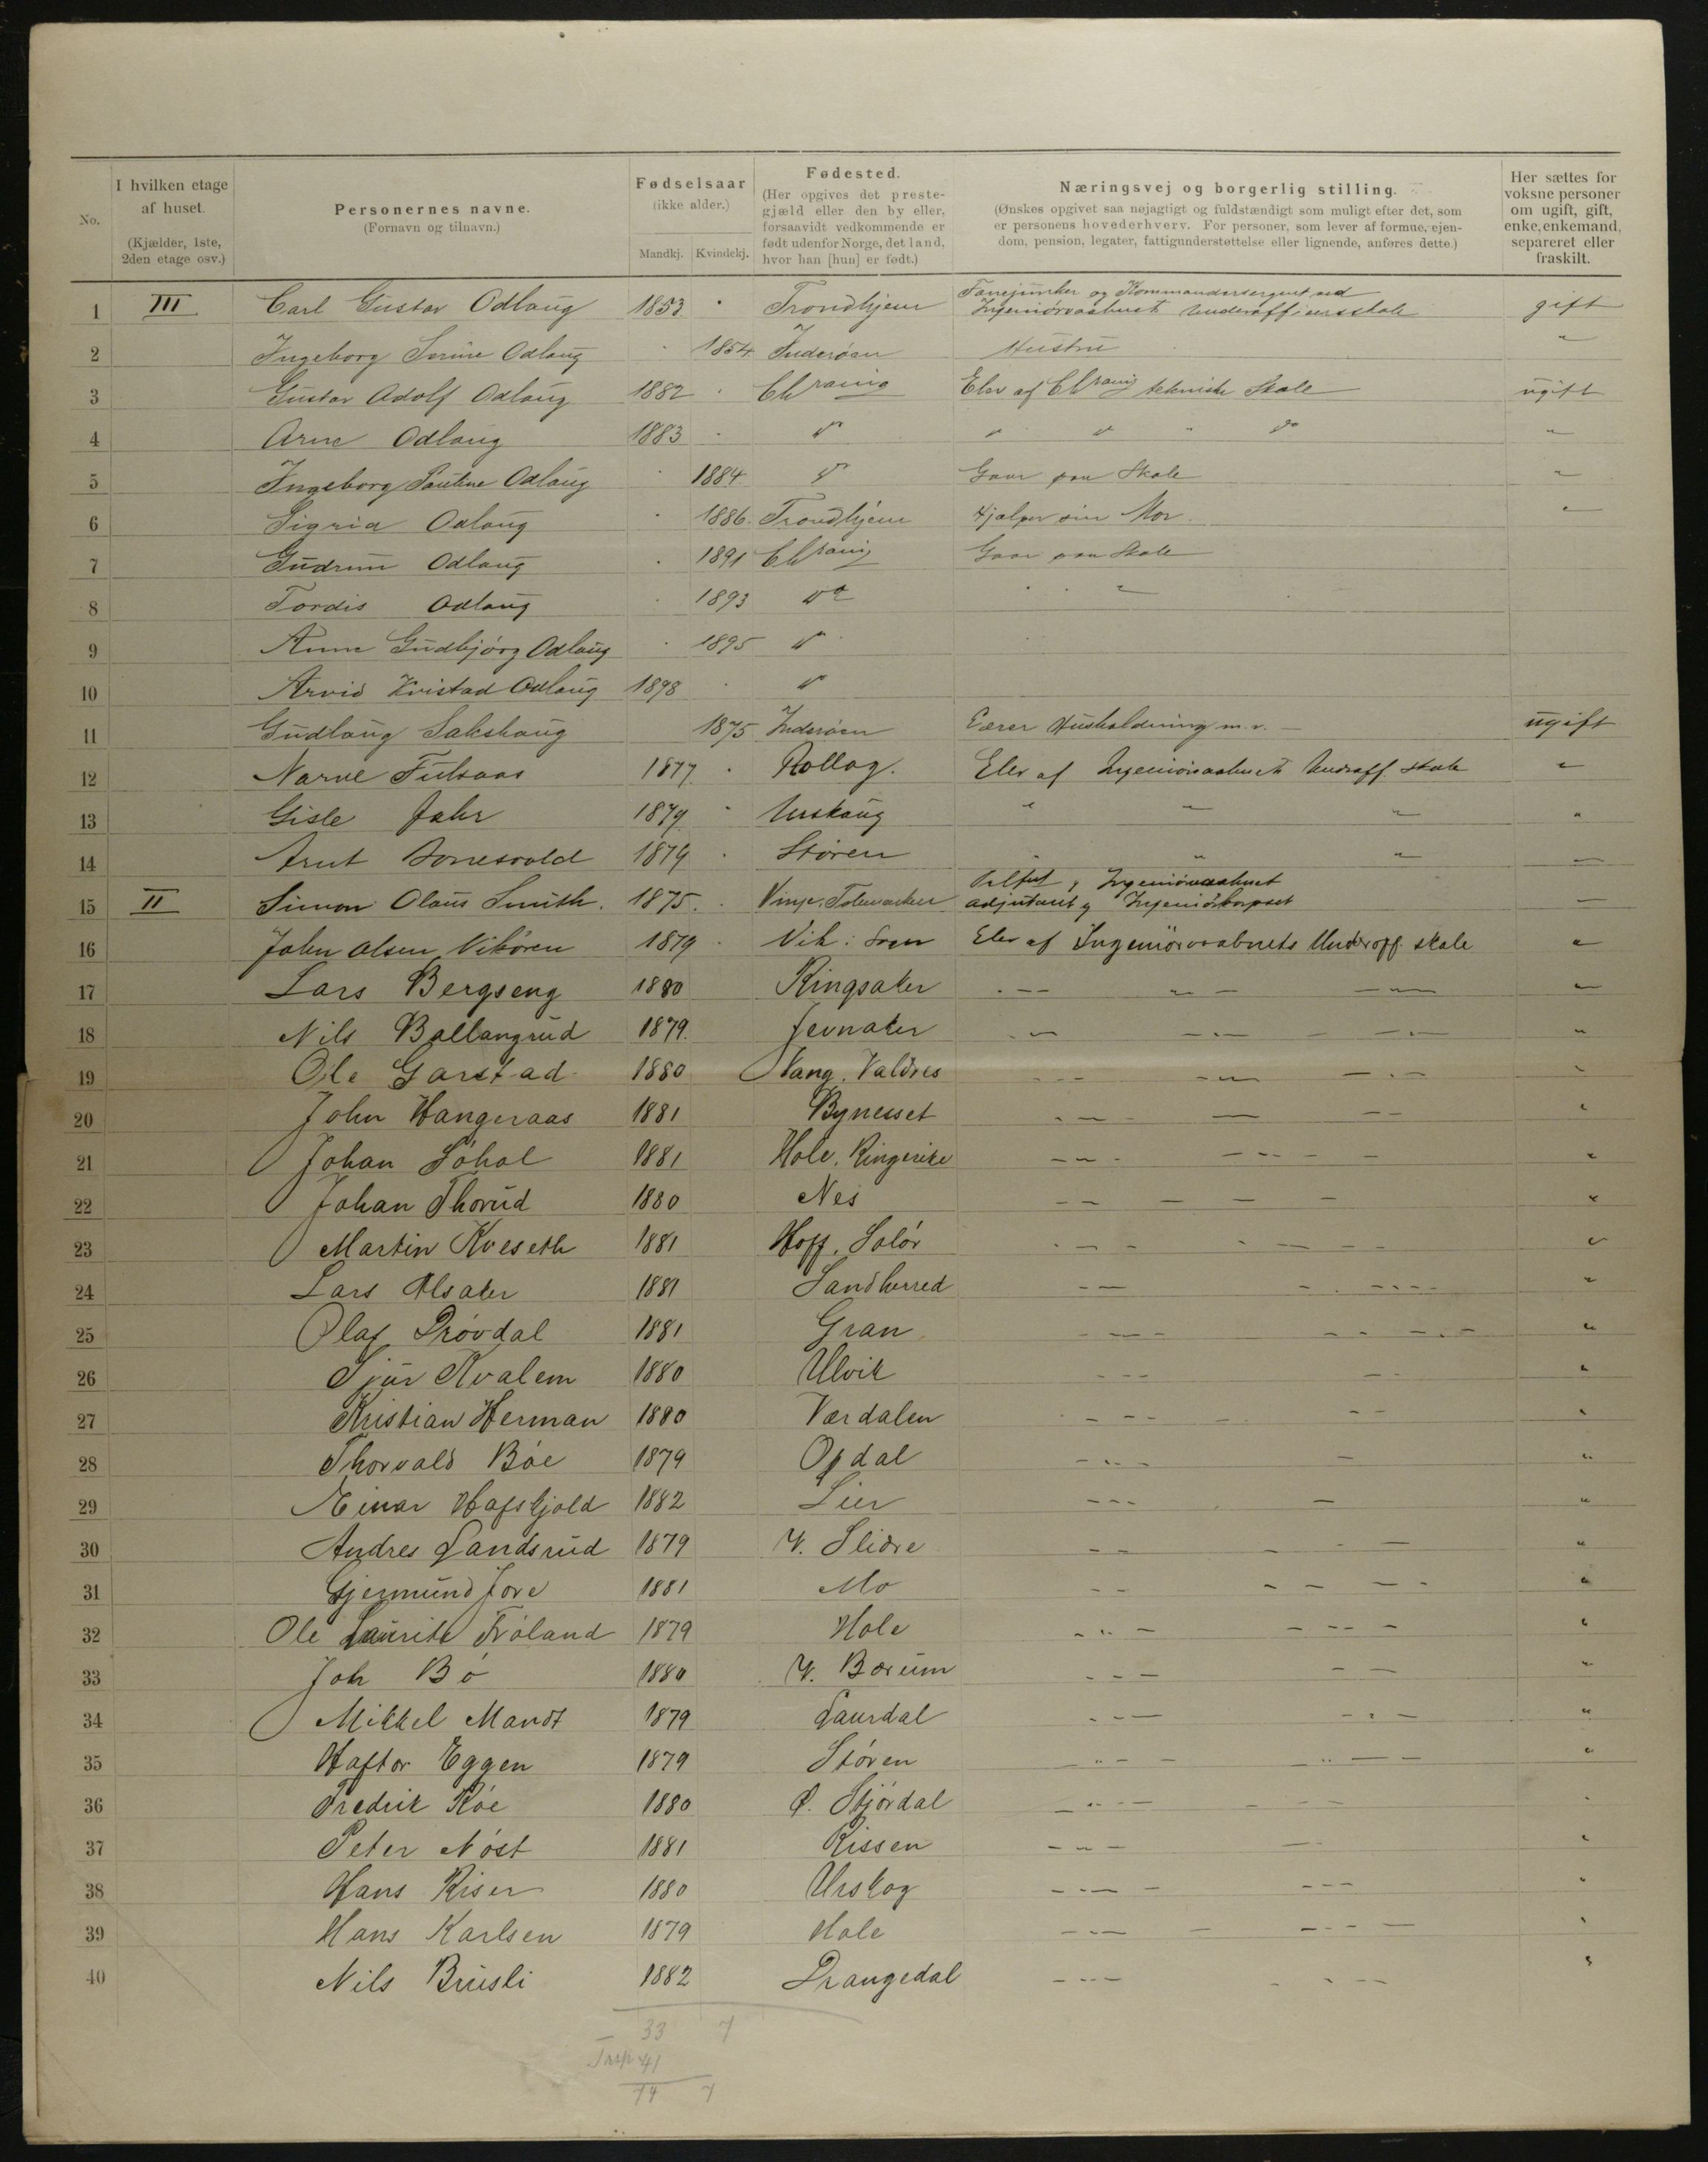 No. | I hvilken etage af huset. (Kjælder, 1ste, 2den etage osv.) | Personernes navne. (Fornavn og tilnavn.) | Fødselsaar (ikke alder.) Mandkj. Kvindekj. | Fødested. (Her opgives det prestegjæld eller den by eller, forsaavidt vedkommende er født udenfor Norge, det land, hvor han [hun] er født.) | Næringsvej og borgerlig stilling. (Ønskes opgivet saa nøjagtigt og fuldstændigt som muligt efter det, som er personens hovederhverv. For personer, som lever af formue, ejendom, pension, legater, fattigunderstøttelse eller lignende, anføres dette.) | Her sættes for voksne personer om ugift, gift, enke, enkemand, separeret eller fraskilt.
1 III Carl Gustav Odlaug 1853 " Trondhjem Fanejunker og Kommandersergent ved Ingeniørvaabnets Underofficersskole gift
2 Ingeborg Serine Odlaug " 1854 Inderøen Hustru "
3 Gustav Adolf Odlaug 1882 " Chrania Elev af Chranias tekniske Skole ugift
4 Arne Odlaug 1883 " do " " " do "
5 Ingeborg Pauline Odlaug " 1884 do Gaar paa Skole "
6 Sigrid Odlaug " 1886 Trondhjem Hjælper sin Mor "
7 Gudrun Odlaug " 1891 Chrania Gaar paa Skole
8 Tordis Odlaug " 1893 do " " "
9 Anne Gudbjørg Odlaug " 1895 do
10 Arvid Kvistad Odlaug 1898 " do
11 Gudlaug Sakshaug 1875 Inderøen Lærer Husholdning m.v. ugift
12 Narve Fulsaas 1877 " Rollag. Elev af Ingeniørvaabnets Underoff. skole "
13 Gisle Jahr 1879 " Urskaug " " " "
14 Arnt Sonesvold 1879 " Støren " " " "
15 II Simon Olaus Smith. 1875. " Vinje. Telemarken adjutant v Ingeniørkorpset "
16 John Olsen Vikøren 1879 " Vik i Sogn Elev af Ingeniørvaabnets Underoff. skole "
17 Lars Bergseng 1880 Ringsaker - " - "
18 Nils Ballangrud 1879. Jevnaker - " - "
19 Ole Garstad 1880 Vang. Valdres - " - "
20 John Hangeraas 1881 Bynesset - " - "
21 Johan Søhol 1881 Hole. Ringerike - " - "
22 Johan Thorud 1880 Nes - " - "
23 Martin Kveseth 1881 Hoff. Solør - " - "
24 Lars Alsaker 1881 Sandherred - " - "
25 Olaf Prøvdal 1881 Gran - " - "
26 Sjur Kvalem 1880 Ulvik - " - "
27 Kristian Herman 1880 Værdalen - " - "
28 Thorvald Bøe 1879 Opdal - " - "
29 Einar Hafskjold 1882 Lier - " - "
30 Andres Landsrud 1879 V. Slidre - " - "
31 Gjermund Jore 1881 Mo - " - "
32 Ole Laurits Frøland 1879 Hole - " - "
33 Joh Bø 1880 V. Bærum - " - "
34 Mikkel Mandt 1879 Laurdal - " - "
35 Haftor Eggen 1879 Støren - " - "
36 Fredrik Røe 1880 Ø. Stjørdal - " - "
37 Peter Nøst 1881 Rissen - " - "
38 Hans Riser 1880 Urskog - " - "
39 Hans Karlsen 1879 Hole - " - "
40 Nils Brusli 1882 Drangedal - " - "
33 7
Trsp 41
74 7